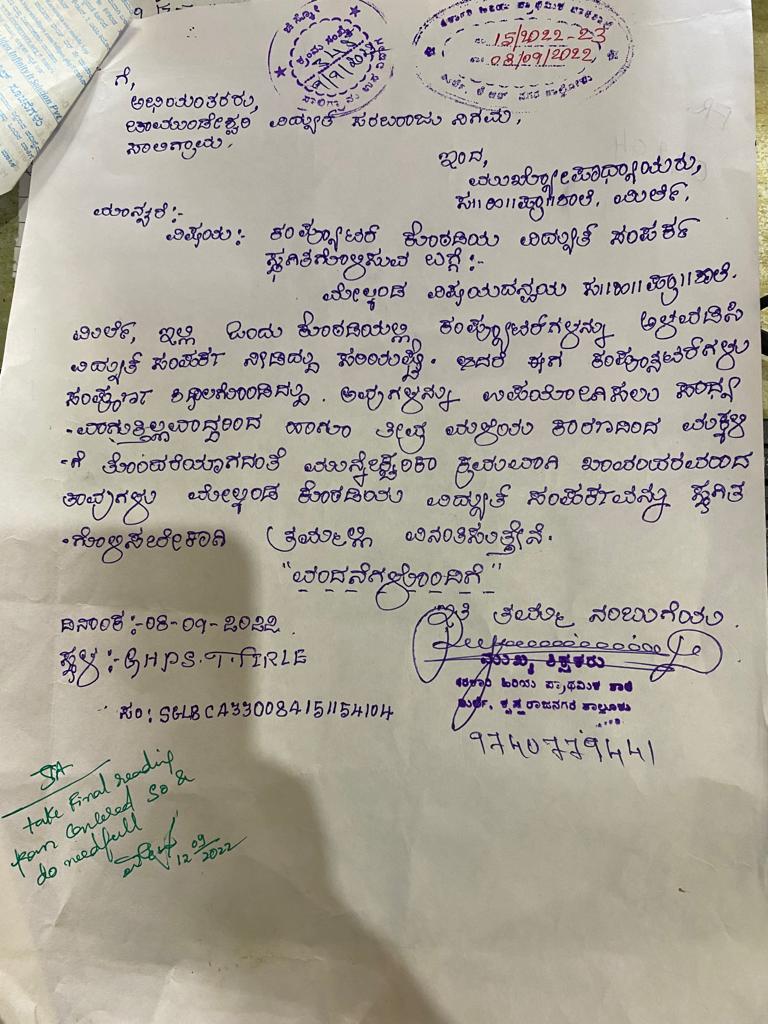 ಸರ್ಕಾರಿ ಹಿರಿಯ ಪ್ರಾಥಮಿಕ ಪಾಠಶಾಲೆ
15/2022-23
08/09/2022
ಮಿರ್ಲೆ, ಕೆ ಆರ್ ನಗರ ತಾಲ್ಲೋಕು
ಗೆ,
ಅಭಿಯಂತರರು,
ಚಾಮುಂಡೇಶ್ವರಿ ವಿದ್ಯುತ್ ಸರಬರಾಜು ನಿಗಮ,
ಸಾಲಿಗ್ರಾಮ.
ಇಂದ,
ಮುಖ್ಯೋಪಾಧ್ಯಾಯರು,
ಸ||ಹಿ||ಪ್ರಾ||ಶಾಲೆ, ಮಿರ್ಲೆ.
ಮಾನ್ಯರೆ:-
ವಿಷಯ: ಕಂಪ್ಯೂಟರ್ ಕೊಠಡಿಯ ವಿದ್ಯುತ್ ಸಂಪರ್ಕ
ಸ್ಥಗಿತಗೊಳಿಸುವ ಬಗ್ಗೆ:-
ಮೇಲ್ಕಂಡ ವಿಷಯದನ್ವಯ ಸ||ಹಿ||ಪ್ರಾ||ಶಾಲೆ.
ಮಿರ್ಲೆ, ಇಲ್ಲಿ ಒಂದು ಕೊಠಡಿಯಲ್ಲಿ ಕಂಪ್ಯೂಟರ್‌ಗಳನ್ನು ಅಳವಡಿಸಿ
ವಿದ್ಯುತ್ ಸಂಪರ್ಕ ನೀಡಿದ್ದು ಸರಿಯಷ್ಟೆ. ಆದರೆ ಈಗ ಕಂಪ್ಯೂಟರ್‌ಗಳು
ಸಂಪೂರ್ಣ ಶಿಥಿಲಗೊಂಡಿದ್ದು. ಅವುಗಳನ್ನು ಉಪಯೋಗಿಸಲು ಸಾಧ್ಯ
-ವಾಗುತ್ತಿಲ್ಲವಾದ್ದರಿಂದ ಹಾಗೂ ತೀವ್ರ ಮಳೆಯ ಕಾರಣದಿಂದ ಮಕ್ಕಳಿ
-ಗೆ ತೊಂದರೆಯಾಗದಂತೆ ಮುನ್ನೆಚ್ಚರಿಕಾ ಕ್ರಮವಾಗಿ
ತಾವುಗಳು ಮೇಲ್ಕಂಡ ಕೊಠಡಿಯ ವಿದ್ಯುತ್ ಸಂಪರ್ಕವನ್ನು ಸ್ಥಗಿತ
-ಗೊಳಿಸಬೇಕಾಗಿ ತಮ್ಮಲ್ಲಿ ವಿನಂತಿಸುತ್ತೇನೆ.
"ವಂದನೆಗಳೊಂದಿಗೆ"
ಇತಿ ತಮ್ಮ ನಂಬುಗೆಯ
ದಿನಾಂಕ:-08-09-2022
ಸ್ಥಳ:-GHPS.T.MIRLE
ಮುಖ್ಯ ಶಿಕ್ಷಕರು
ಸರಕಾರಿ ಹಿರಿಯ ಪ್ರಾಥಮಿಕ ಶಾಲೆ
ಮಿರ್ಲೆ, ಕೃಷ್ಣರಾಜನಗರ ತಾಲ್ಲೂಕು
ಸಂ: SGLBCA330084151154104
9740779441
SA
take Final reading
from concerned SO &
do needfull
12/09/2022